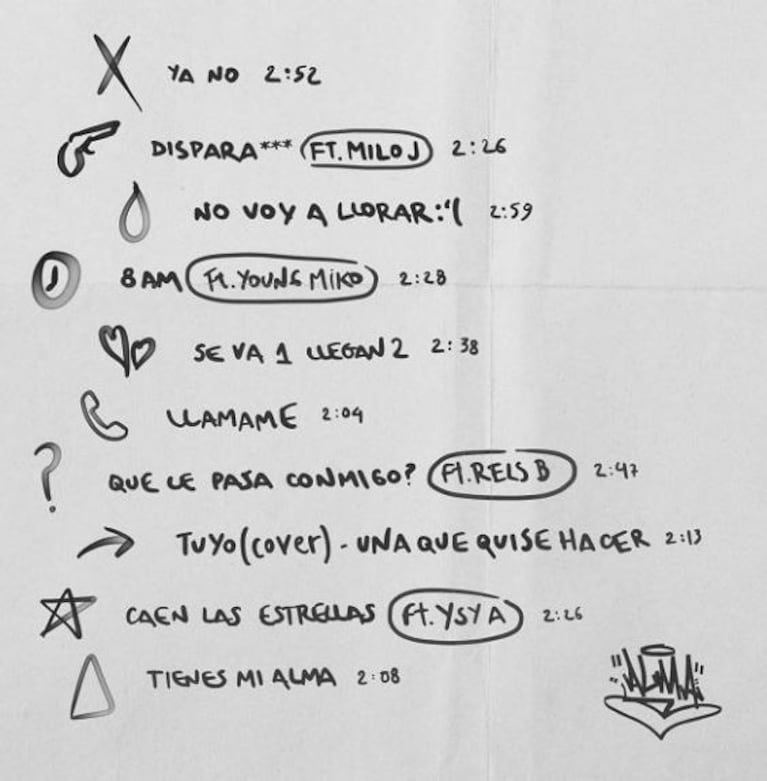 YA NO 2:52
DISPARA*** (FT. MILO J) 2:26
NO VOY A LLORAR:'( 2:59
8 AM (Ft. YOUNG MIKO) 2:28
SE VA 1 LLEGAN 2 2:38
LLAMAME 2:04
QUE LE PASA CONMIGO? (Ft. RELS B) 2:47
TUYO (cover) - UNA QUE QUISE HACER 2:13
CAEN LAS ESTRELLAS (Ft. YSY A) 2:26
TIENES MI ALMA 2:08
"ALMA"